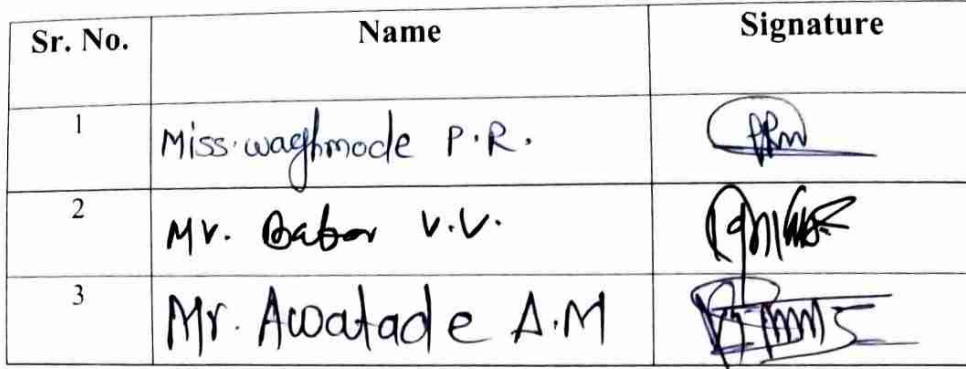 Sr. No. Name Signature
1 Miss. waghmode P.R.
2 Mr. Babar V.V.
3 Mr. Awatade A.M